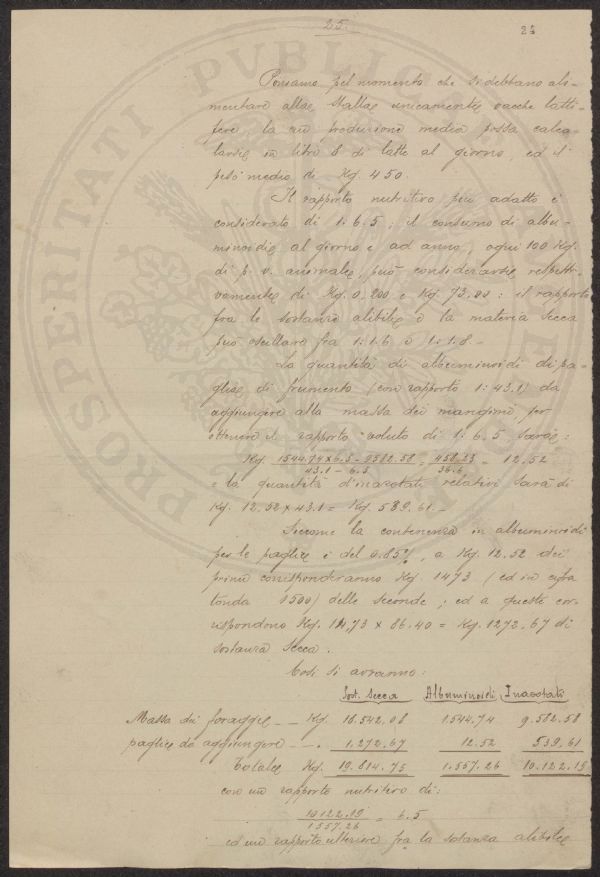 25.
25
Poniamo pel momento che si debbano ali-
mentare alla stalla unicamente vacche latti-
fere, la cui produzione media possa calco-
larsi in litri 8 di latte al giorno, ed il
peso medio di Kg. 450.
Il rapporto nutritivo più adatto è
considerato di 1:6.5; il consumo di albu-
minoidi al giorno e ad anno, ogni 100 Kg.
di p. v. animale, può considerarsi rispetti-
vamente di Kg. 0,200 e Kg. 73,00: il rapporto
fra le sostanze alibili e la materia secca
può oscillare fra 1:1.6 e 1:1.8-
La quantità di albuminoidi di pa-
glie di frumento (con rapporto 1:43.1) da
aggiungere alla massa dei mangimi per
ottenere il rapporto voluto di 1:6.5 sarà:
Kg. 1544.74 x 6.5 - 9582.58 / 43.1 - 6.5 = 458.23 / 36.6 = 12.52
e la quantità d'inazotati relativi sarà di
Kg. 12.52 x 43.1 = Kg. 539.61.-
Siccome la contenenza in albuminoidi
per le paglie è del 0.85%, a Kg. 12.52 dei
primi corrisponderanno Kg. 1473 (ed in cifra
tonda 1500) delle seconde; ed a queste cor-
rispondono Kg. 14,73 x 86.40 = Kg. 1272,67 di
sostanza secca.
Così si avranno:
Sost. secca Albuminoidi Inazotati
Massa dei foraggi -- Kg. 18.542,08 1544.74 9.582.58
paglie da aggiungere --- . 1.272,67 12.52 539.61
Totale Kg. 19.814.75 1.557.26 10.122.19
con un rapporto nutritivo di:
10122.19 / 1557.26 = 6.5
ed un rapporto ulteriore fra la sostanza alibile
PROSPERITATI PVBLICAE